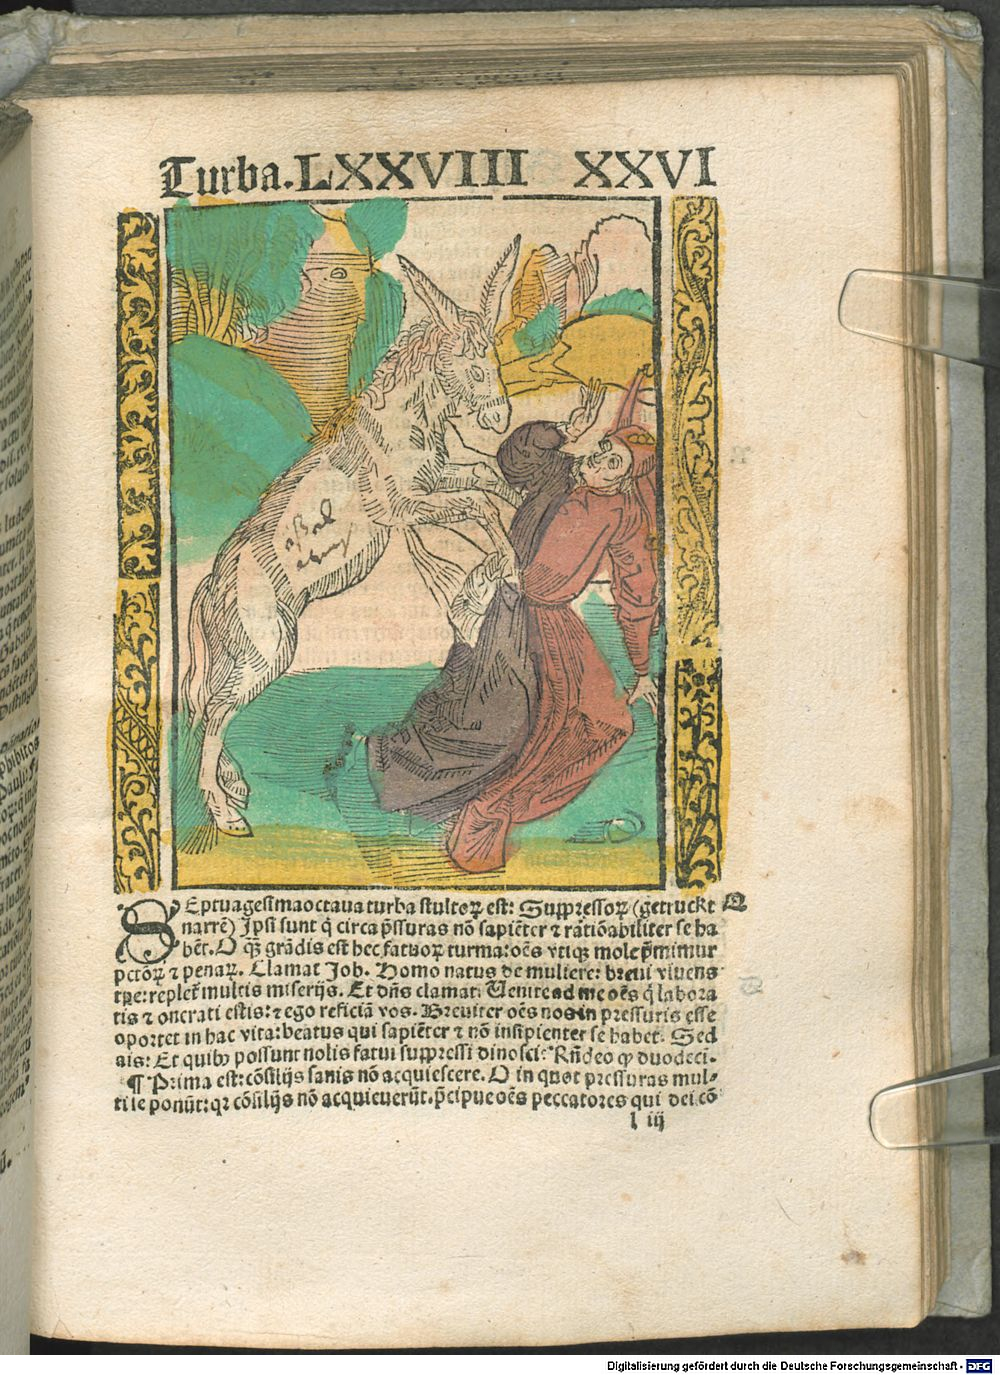 Turba. LXXVIII XXVI
SEptuagesimaoctaua turba stultoꝝ est: Suppressoꝝ (getruckt Q
narrē) Ipsi sunt q̄ circa p̄ssuras nō sapiēter ⁊ ratiōabiliter se ha
bēt. O q̄ᷓ grādis est hec fatuoꝝ turma: oēs vtiqꝫ mole p̄mimur
pctōꝝ ⁊ penaꝝ. Clamat Job. Homo natus de muliere: breui viuens
tpe: replet᷑ multis miserijs. Et dn̄s clamat: Uenite ad me oēs q̄ labora
tis ⁊ onerati estis: ⁊ ego reficiā vos. Breuiter oēs nos in pressuris esse
oportet in hac vita: beatus qui sapiēter ⁊ nō insipienter se habet. Sed
ais: Et quibꝰ possunt nolis fatui suppressi dinosci: Rn̄deo ꝙ duodeci.
¶ Prima est: cōsilijs sanis nō acquiescere. O in quot pressuras mul-
ti se ponūt: qꝛ cōsilijs nō acquieuerūt. p̄cipue oēs peccatores qui dei cō
l iij
Digitalisierung gefördert durch die Deutsche Forschungsgemeinschaft - DFG